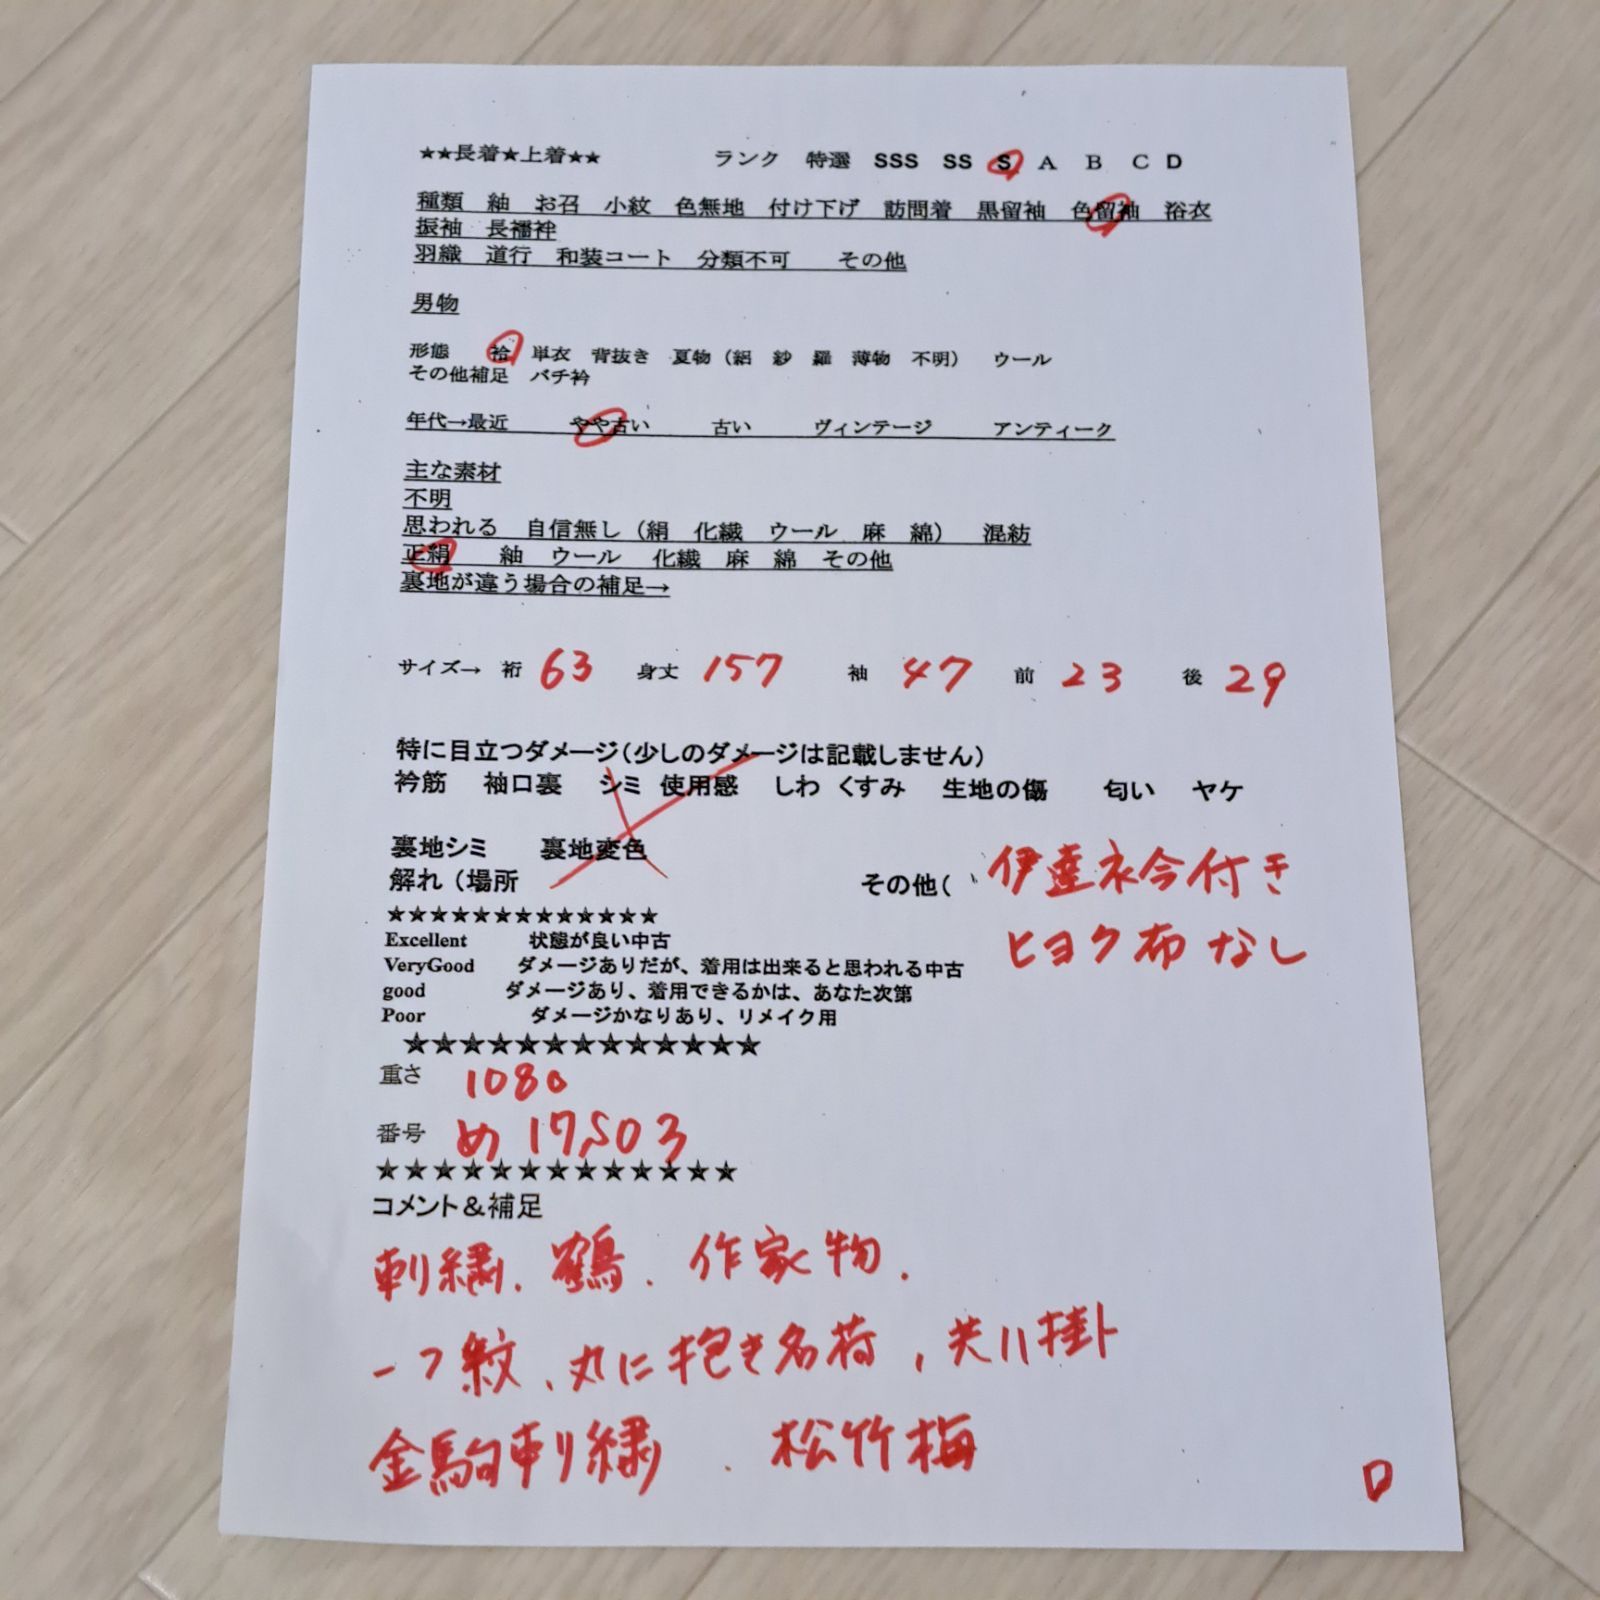 ★★長着★上着★★　ランク　特選　SSS　SS　S　A　B　C　D
種類　紬　お召　小紋　色無地　付け下げ　訪問着　黒留袖　色留袖　浴衣
振袖　長襦袢
羽織　道行　和装コート　分類不可　その他
男物
形態　袷　単衣　背抜き　夏物（絽　紗　羅　薄物　不明）　ウール
その他補足　バチ衿
年代→最近　やや古い　古い　ヴィンテージ　アンティーク
主な素材
不明
思われる　自信無し（絹　化繊　ウール　麻　綿）　混紡
正絹　紬　ウール　化繊　麻　綿　その他
裏地が違う場合の補足→
サイズ→　裄　63　身丈　157　袖　47　前　23　後　29
特に目立つダメージ（少しのダメージは記載しません）
衿筋　袖口裏　シミ　使用感　しわ　くすみ　生地の傷　匂い　ヤケ
裏地シミ　裏地変色
解れ（場所　その他（　伊達衿付き
ヒヨク布なし
★★★★★★★★★★★★★
Excellent　状態が良い中古
VeryGood　ダメージありだが、着用は出来ると思われる中古
good　ダメージあり、着用できるかは、あなた次第
Poor　ダメージかなりあり、リメイク用
★★★★★★★★★★★★★
重さ　1080
番号　め17,503
★★★★★★★★★★★★★
コメント＆補足
刺繍．鶴．作家物．
一つ紋、丸に抱き名荷，共八掛
金駒刺繍．松竹梅
D